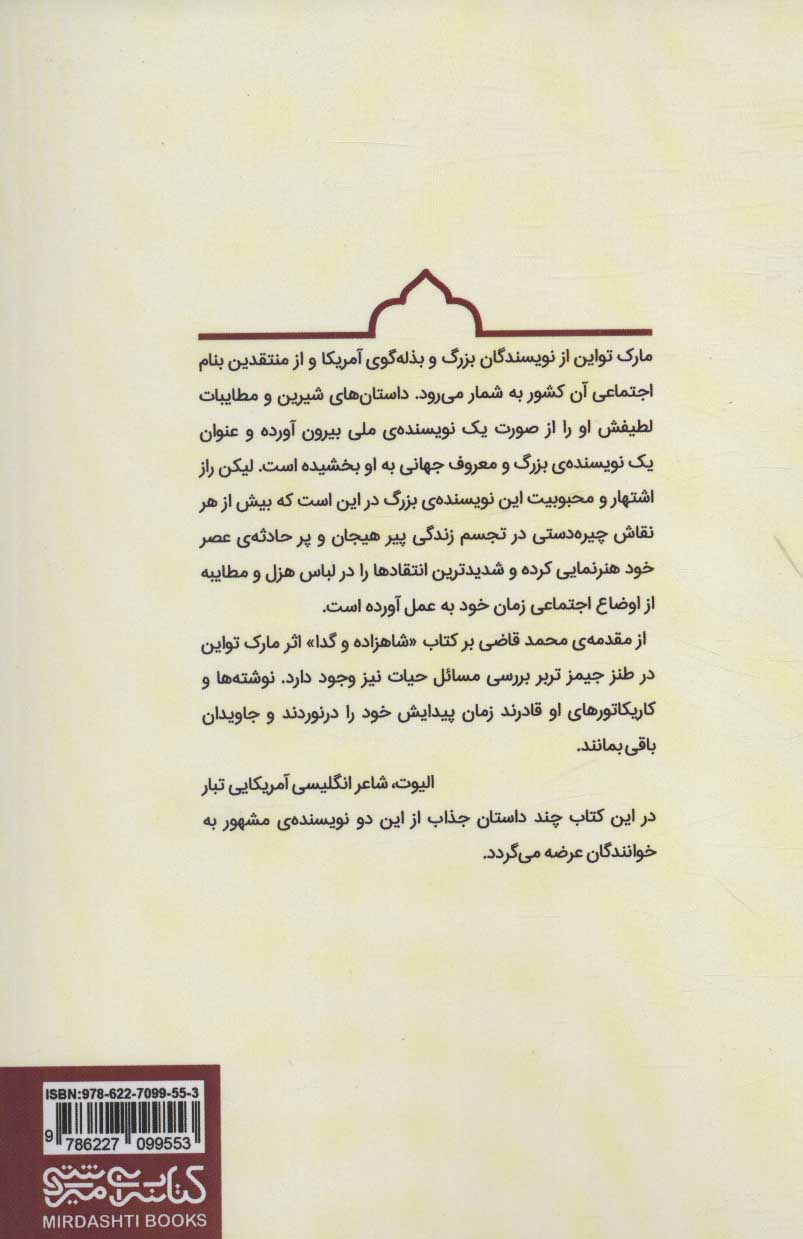 مارک تواین از نویسندگان بزرگ و بذله‌گوی آمریکا و از منتقدین بنام
اجتماعی آن کشور به شمار می‌رود. داستان‌های شیرین و مطایبات
لطیفش او را از صورت یک نویسنده‌ی ملی بیرون آورده و عنوان
یک نویسنده‌ی بزرگ و معروف جهانی به او بخشیده است. لیکن راز
اشتهار و محبوبیت این نویسنده‌ی بزرگ در این است که بیش از هر
نقاش چیره‌دستی در تجسم زندگی پیر هیجان و پر حادثه‌ی عصر
خود هنرنمایی کرده و شدیدترین انتقادها را در لباس هزل و مطایبه
از اوضاع اجتماعی زمان خود به عمل آورده است.
از مقدمه‌ی محمد قاضی بر کتاب «شاهزاده و گدا» اثر مارک تواین
در طنز جیمز تربر بررسی مسائل حیات نیز وجود دارد. نوشته‌ها و
کاریکاتورهای او قادرند زمان پیدایش خود را درنوردند و جاویدان
باقی بمانند.
الیوت، شاعر انگلیسی آمریکایی تبار
در این کتاب چند داستان جذاب از این دو نویسنده‌ی مشهور به
خوانندگان عرضه می‌گردد.
ISBN:978-622-7099-55-3
9 786227 099553
کتابسرای میردشتی
MIRDASHTI BOOKS